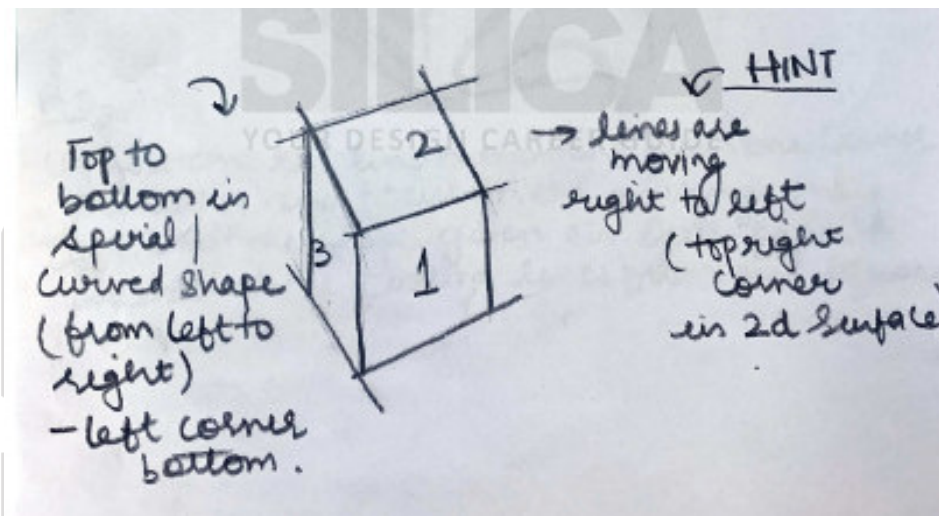 SILICA
YOUR DESIGN CAREER GUIDE
HINT
Top to
bottom in
spiral |
curved shape
(from left to
right)
- left corner
bottom.
2
3
1
→ lines are
moving
right to left
(top right
corner
in 2d surface